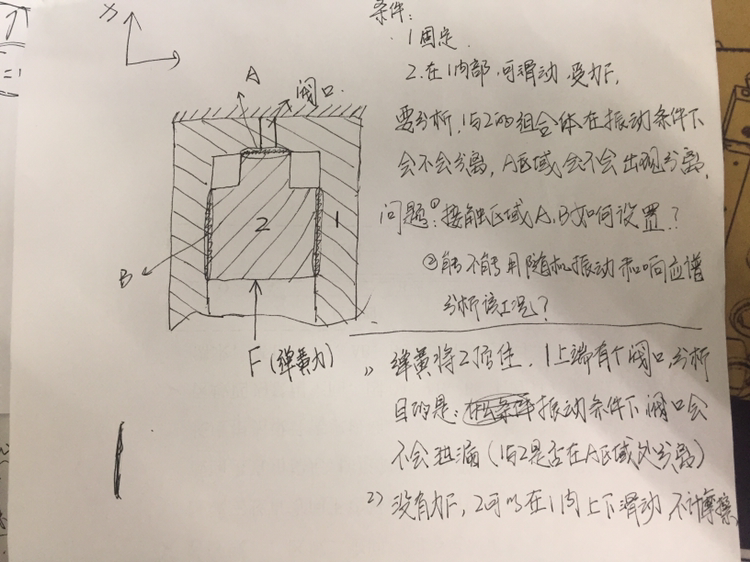 条件：
1固定
2.在1内部,可滑动,受力F,
要分析,1与2的组合体在振动条件下
会不会分离, A区域会不会出现分离,
问题:①接触区域A、B如何设置?
②能不能用随机振动和响应谱
分析该工况?
A
阀口
2
1
B
F(弹簧力)
1) 弹簧将2压住, 1上端有个阀口,分析
目的是: 振动条件下阀口会
不会泄漏(1与2是否在A区域处分离)
2) 没有力F, 2可以在1内上下滑动,不计摩擦